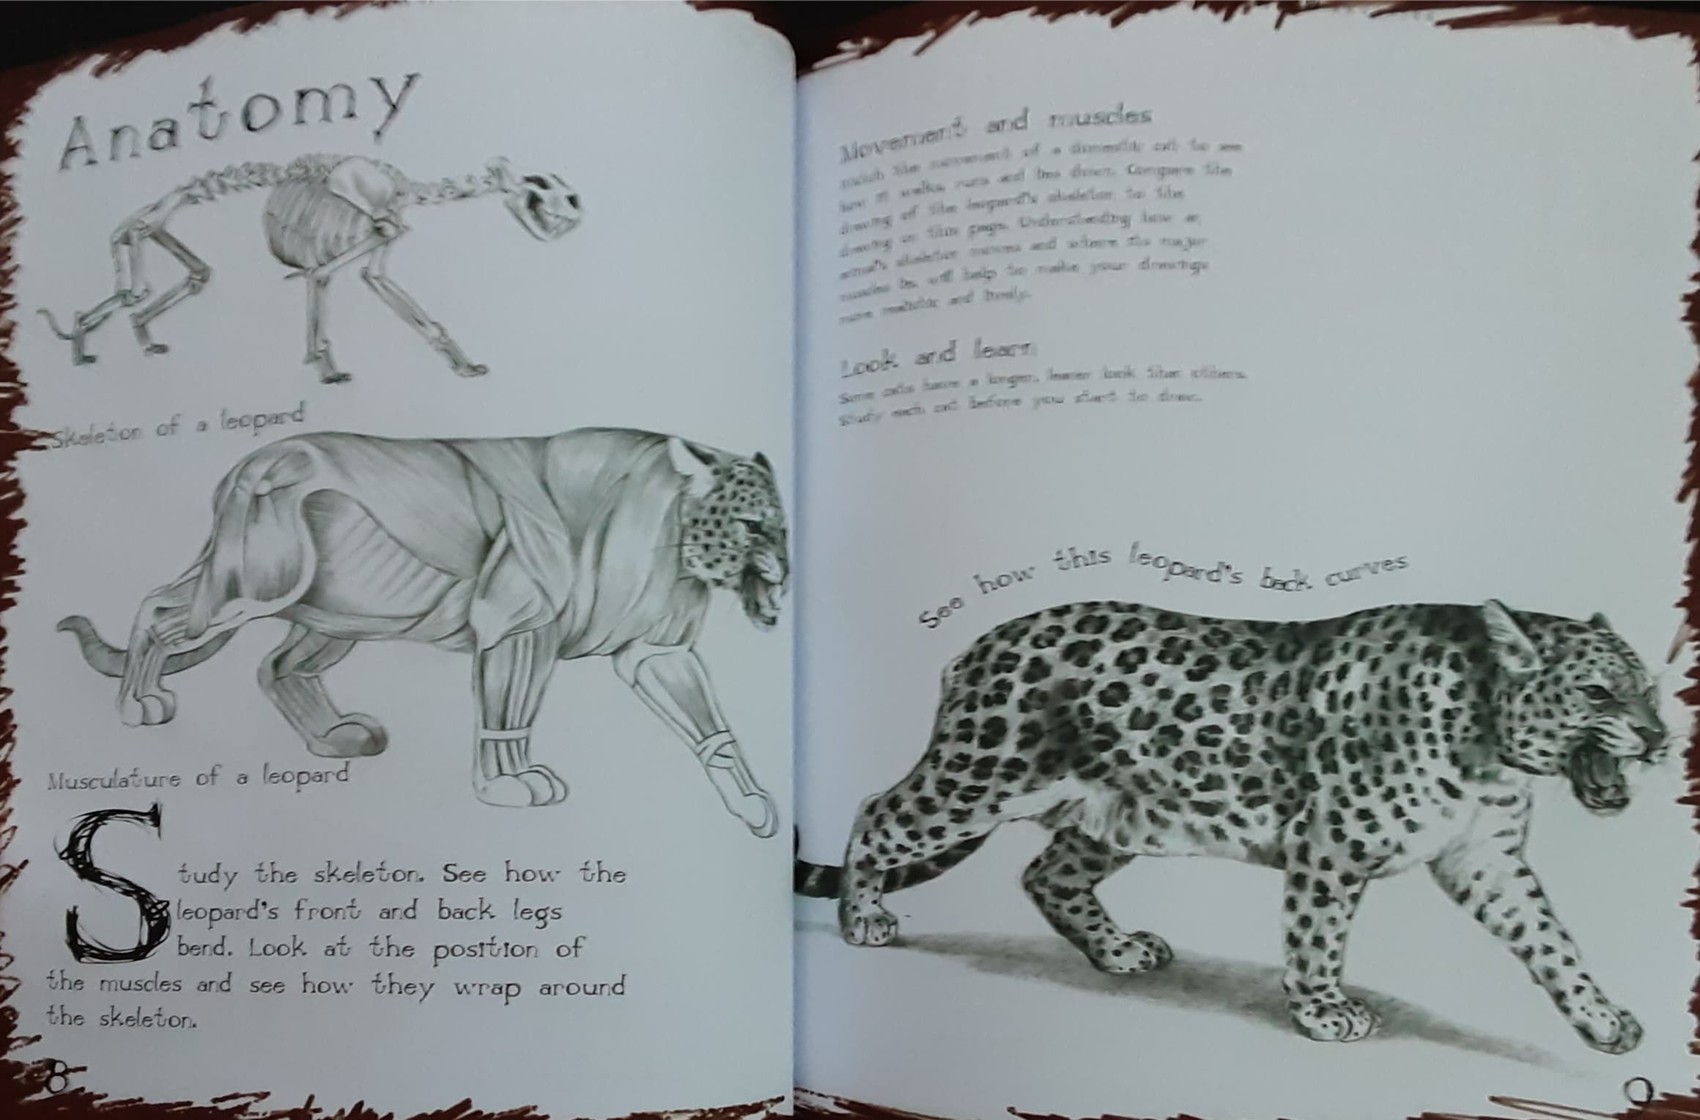 Anatomy
Skeleton of a leopard
Musculature of a leopard
Study the skeleton. See how the
leopard's front and back legs
bend. Look at the position of
the muscles and see how they wrap around
the skeleton.
8
Movement and muscles
Watch the movement of a domestic cat to see
how it walks, runs and lies down. Compare the
drawing of the leopard's skeleton to the
drawing on this page. Understanding how an
animal's skeleton moves and where the major
muscles lie, will help to make your drawings
more realistic and lively.
Look and learn
Some cats have a longer, leaner look than others.
Study each cat before you start to draw.
See how this leopard's back curves